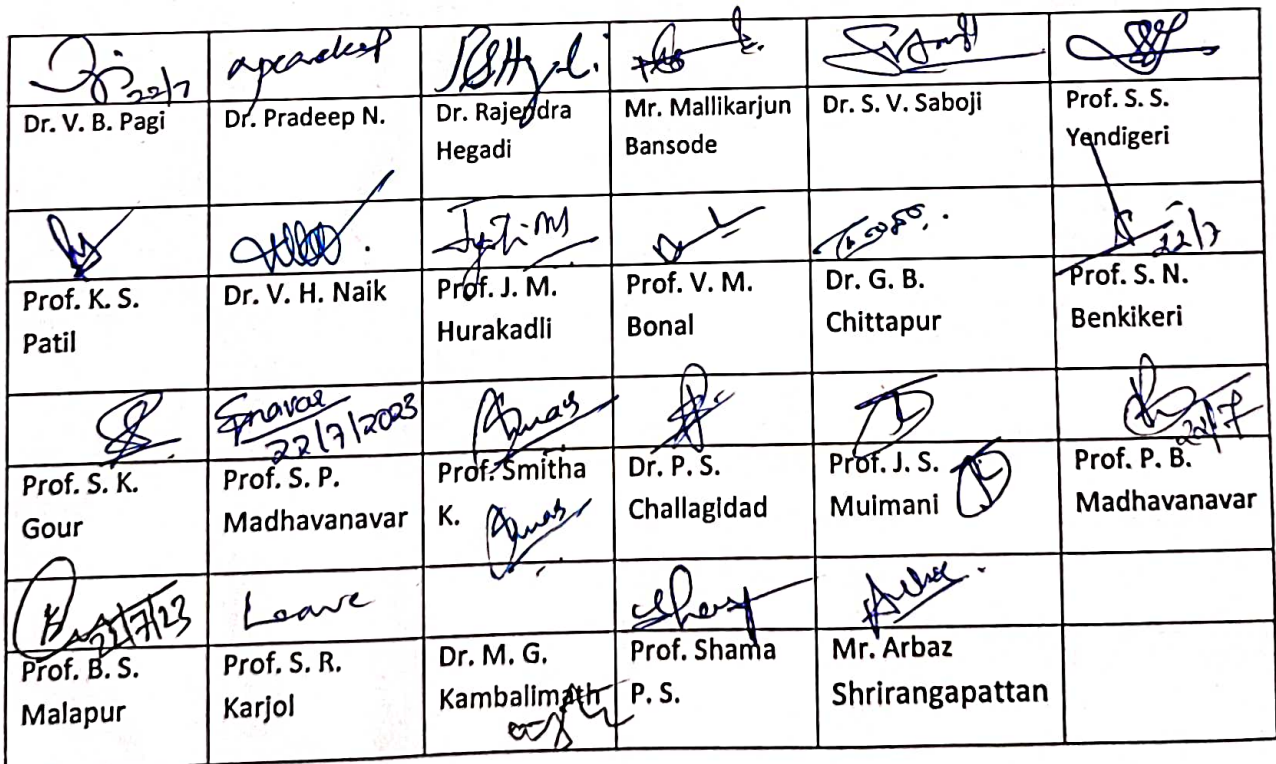 22/7
Dr. V. B. Pagi
Dr. Pradeep N.
Dr. Rajendra
Hegadi
Mr. Mallikarjun
Bansode
Dr. S. V. Saboji
Prof. S. S.
Yendigeri
Jyoti M
22/7
Prof. K. S.
Patil
Dr. V. H. Naik
Prof. J. M.
Hurakadli
Prof. V. M.
Bonal
Dr. G. B.
Chittapur
Prof. S. N.
Benkikeri
22/7/2023
22/7
Prof. S. K.
Gour
Prof. S. P.
Madhavanavar
Prof. Smitha
K.
Dr. P. S.
Challagidad
Prof. J. S.
Muimani
Prof. P. B.
Madhavanavar
22/7/23
Leave
Prof. B. S.
Malapur
Prof. S. R.
Karjol
Dr. M. G.
Kambalimath
Prof. Shama
P. S.
Mr. Arbaz
Shrirangapattan